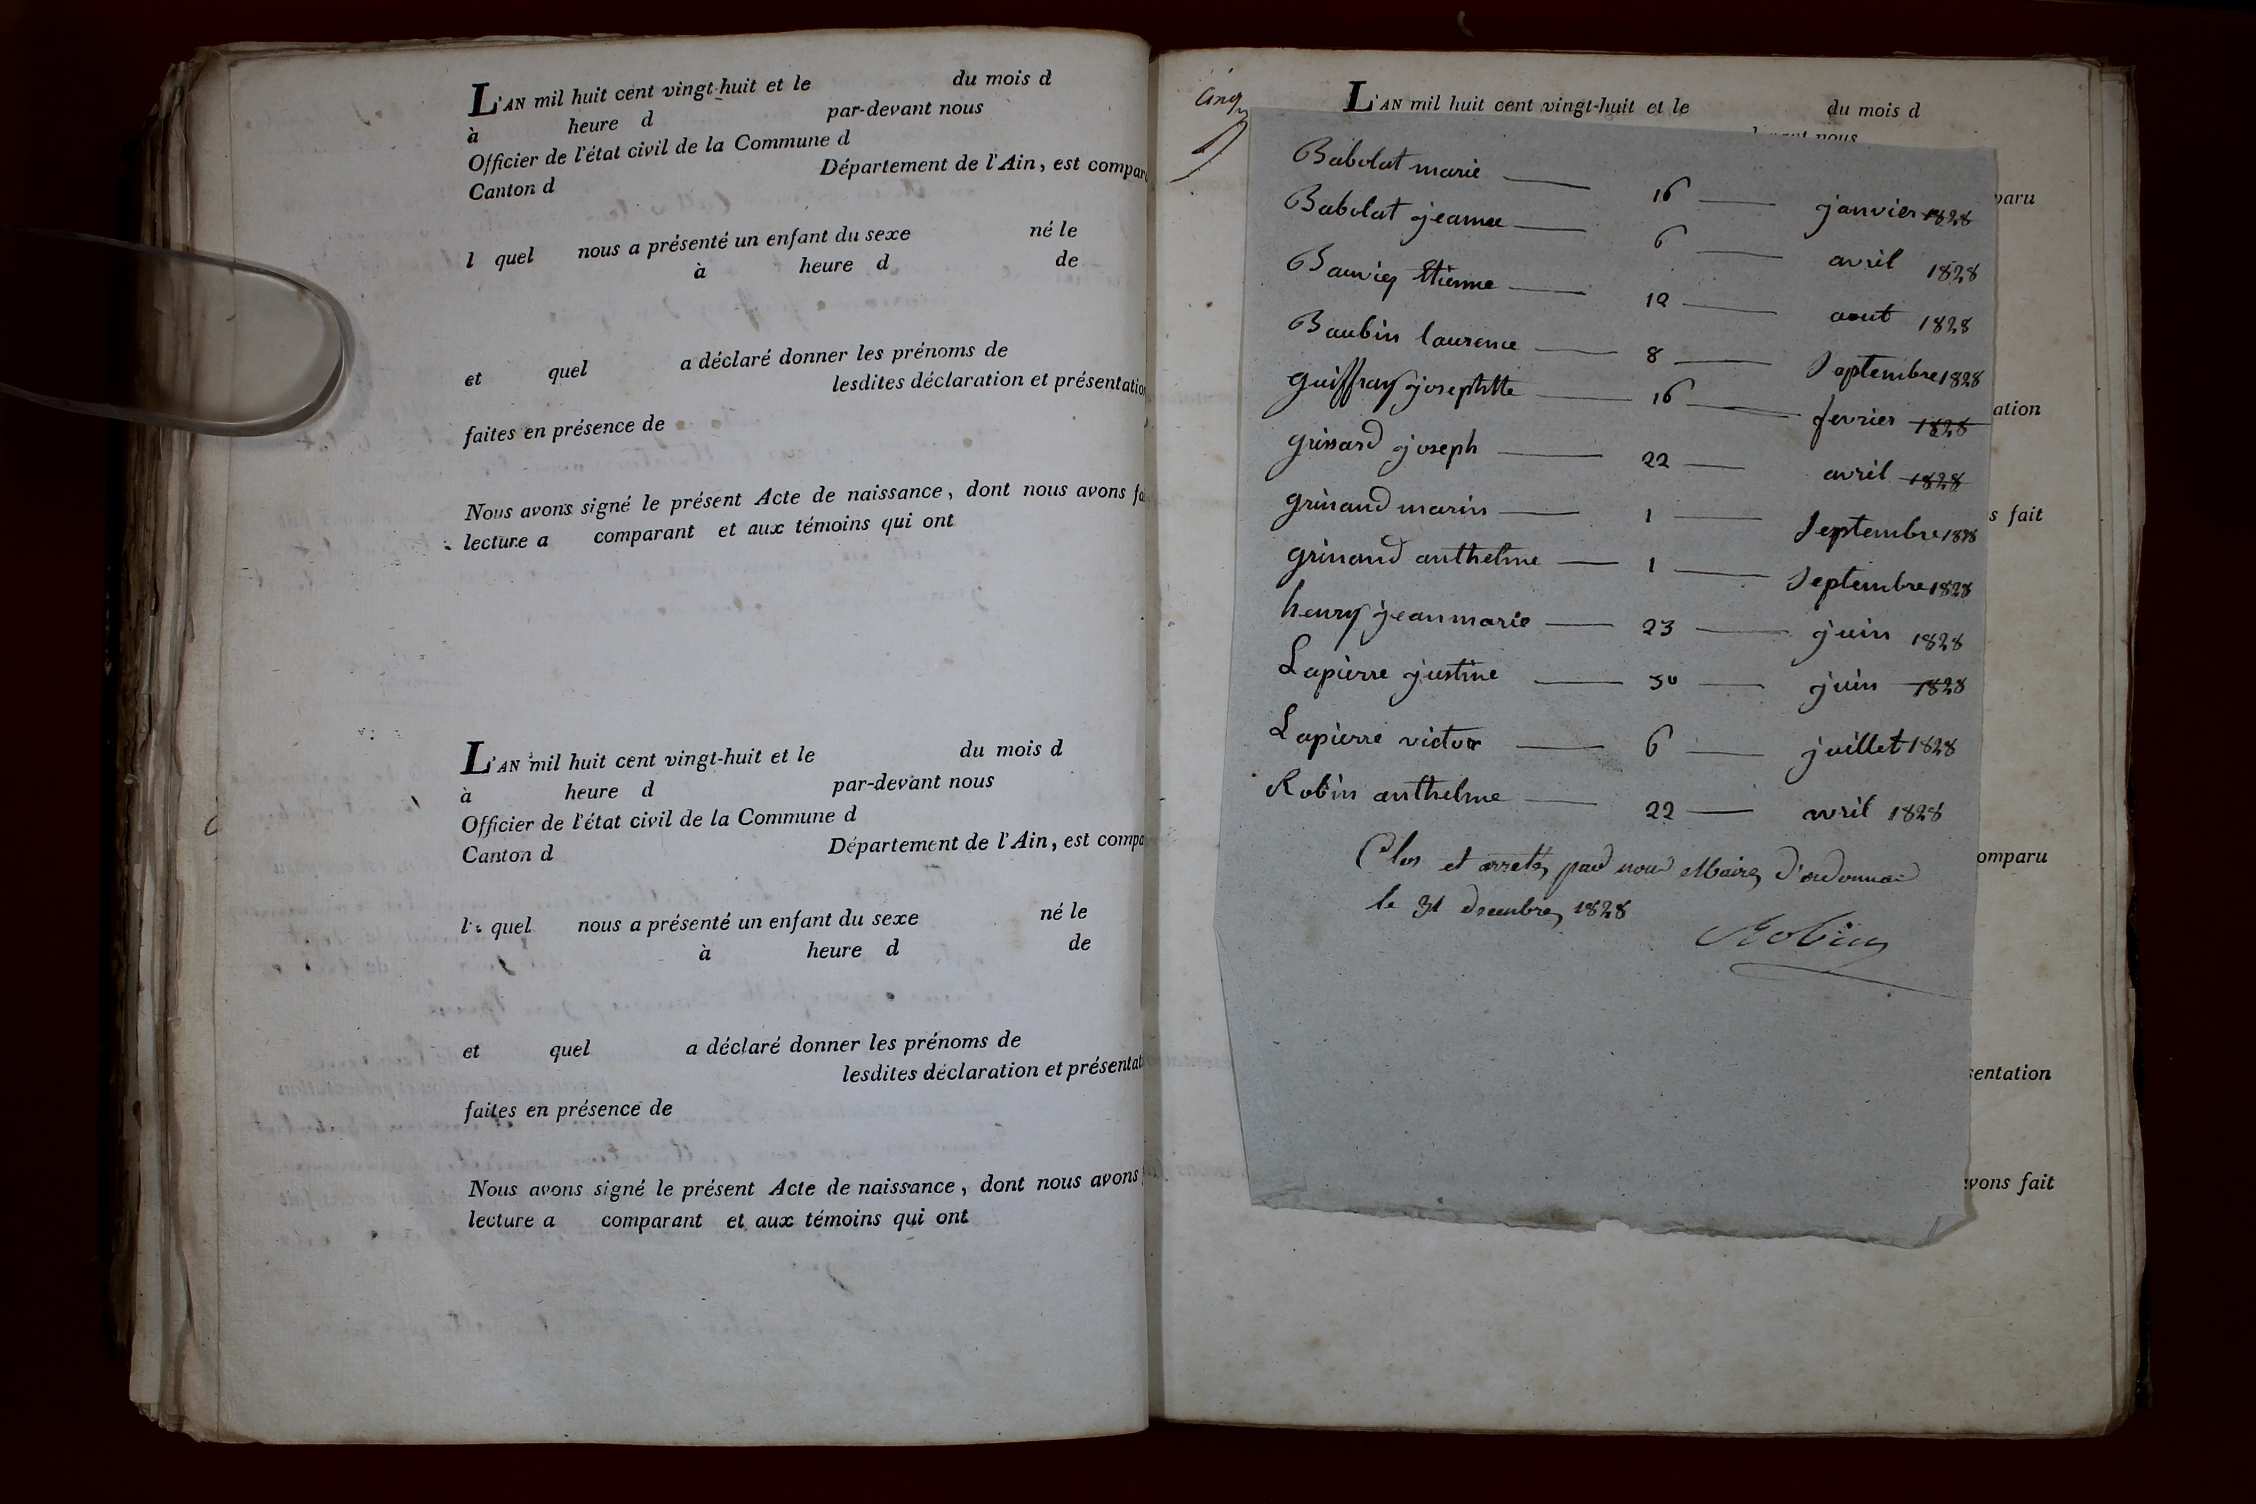 L'AN mil huit cent vingt-huit et le du mois d
à heure d par-devant nous
Officier de l'état civil de la Commune d
Canton d Département de l'Ain, est compar
l quel nous a présenté un enfant du sexe né le
à heure d de
et quel a déclaré donner les prénoms de
lesdites déclaration et présentatio
faites en présence de
Nous avons signé le présent Acte de naissance, dont nous avons fa
lecture a comparant et aux témoins qui ont
L'AN mil huit cent vingt-huit et le du mois d
à heure d par-devant nous
Officier de l'état civil de la Commune d
Canton d Département de l'Ain, est compa
l quel nous a présenté un enfant du sexe né le
à heure d de
et quel a déclaré donner les prénoms de
lesdites déclaration et présentat
faites en présence de
Nous avons signé le présent Acte de naissance, dont nous avons
lecture a comparant et aux témoins qui ont
Cinq
L'AN mil huit cent vingt-huit et le du mois d
nous
paru
ation
s fait
omparu
sentation
vons fait
Babolat marie 16 janvier 1828
Babolat jeanne 6 avril 1828
Etienne 12 aout 1828
Baubin laurence 8 Septembre 1828
guiffray josephtte 16 fevrier 1828
grinand joseph 22 avril 1828
grinand marin 1 Septembre 1828
grinand anthelme 1 Septembre 1828
henry jeanmarie 23 juin 1828
Lapierre justine 30 juin 1828
Lapierre victor 6 juillet 1828
Robin anthelme 22 avril 1828
Clos et arreté par nous Maire d'ordonnas
le 31 decembre 1828
Robin